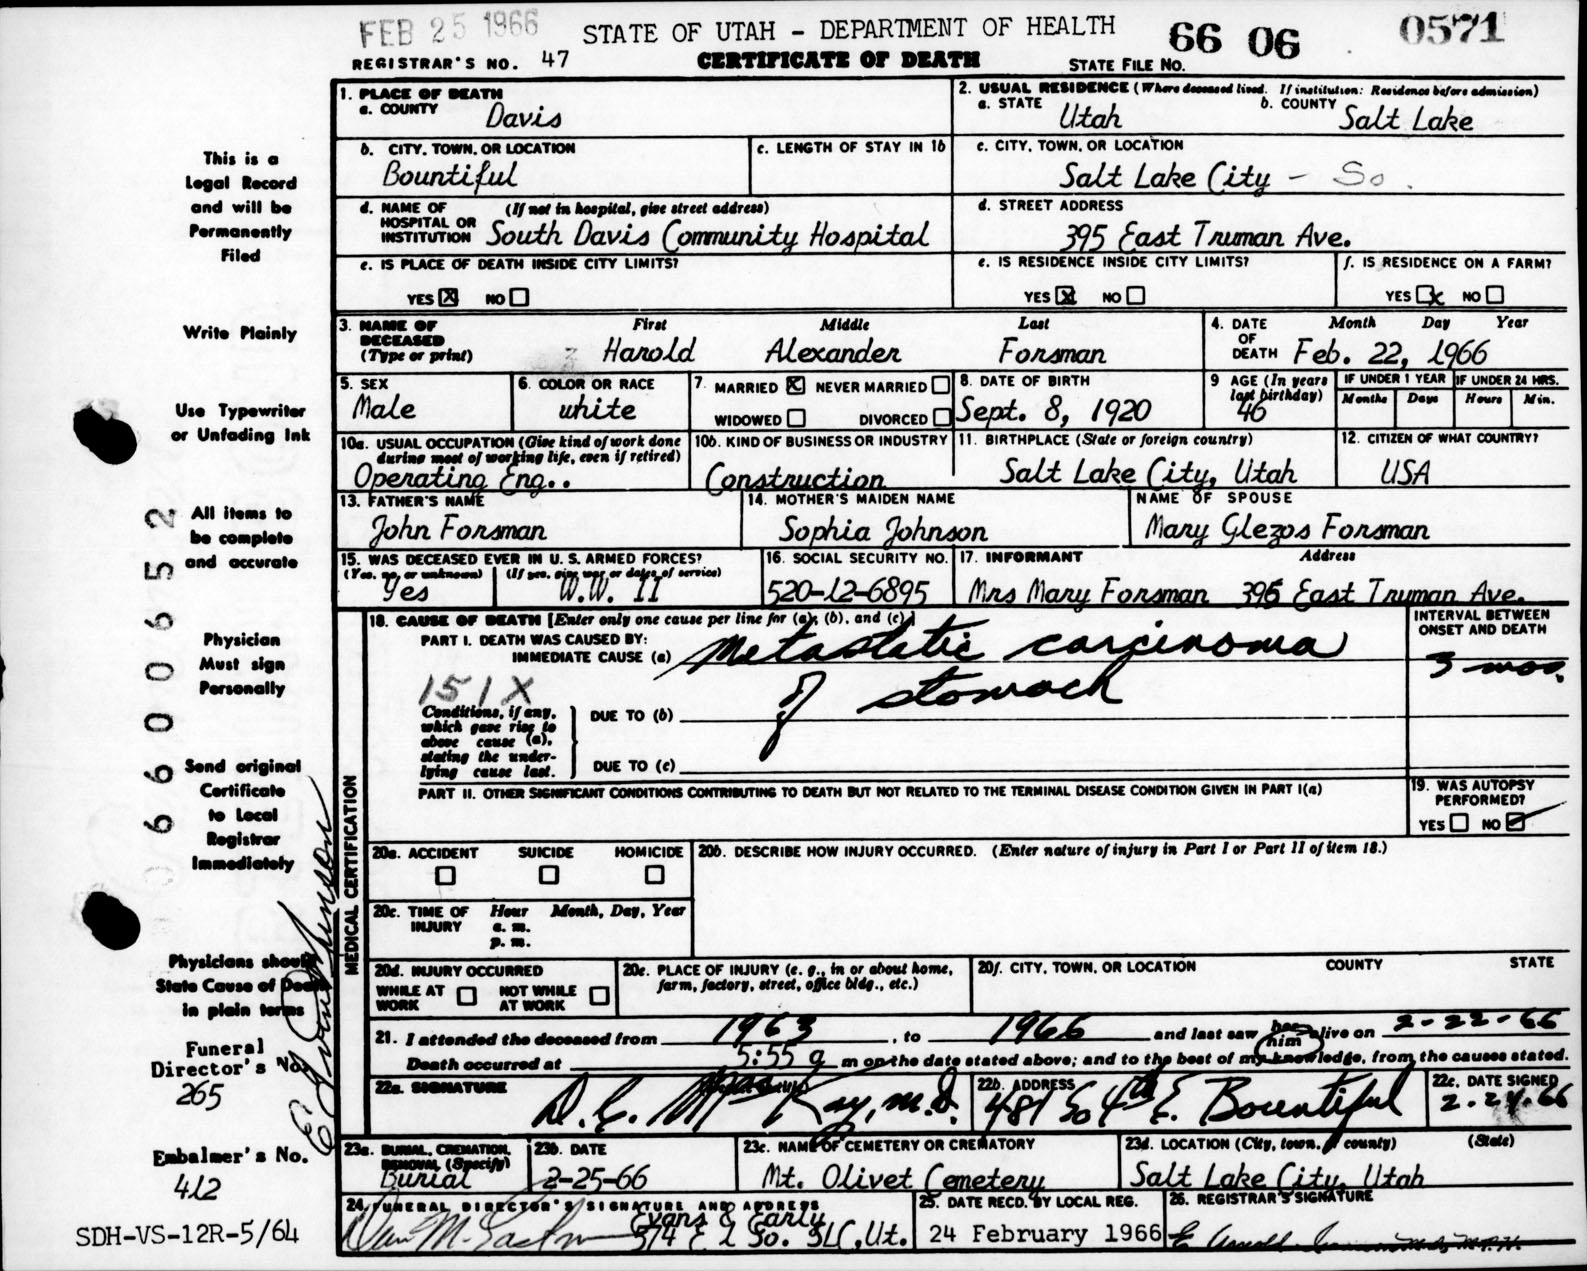 FEB 25 1966 STATE OF UTAH - DEPARTMENT OF HEALTH 66 06 0571
REGISTRAR'S NO. 47 CERTIFICATE OF DEATH STATE FILE No.
1. PLACE OF DEATH
a. COUNTY Davis
2. USUAL RESIDENCE (Where deceased lived. If institution: Residence before admission)
a. STATE Utah b. COUNTY Salt Lake
b. CITY, TOWN, OR LOCATION Bountiful
c. LENGTH OF STAY IN 1b
c. CITY, TOWN, OR LOCATION
Salt Lake City - So.
d. NAME OF HOSPITAL OR INSTITUTION (If not in hospital, give street address)
South Davis Community Hospital
d. STREET ADDRESS
395 East Truman Ave.
e. IS PLACE OF DEATH INSIDE CITY LIMITS?
YES X NO
e. IS RESIDENCE INSIDE CITY LIMITS?
YES X NO
f. IS RESIDENCE ON A FARM?
YES X NO
3. NAME OF DECEASED (Type or print) First Middle Last
Harold Alexander Forsman
4. DATE OF DEATH Month Day Year
Feb. 22, 1966
5. SEX
Male
6. COLOR OR RACE
white
7. MARRIED X NEVER MARRIED
WIDOWED DIVORCED
8. DATE OF BIRTH
Sept. 8, 1920
9 AGE (In years last birthday)
46
IF UNDER 1 YEAR IF UNDER 24 HRS.
Months Days Hours Min.
10a. USUAL OCCUPATION (Give kind of work done during most of working life, even if retired)
Operating Eng..
10b. KIND OF BUSINESS OR INDUSTRY
Construction
11. BIRTHPLACE (State or foreign country)
Salt Lake City, Utah
12. CITIZEN OF WHAT COUNTRY?
USA
13. FATHER'S NAME
John Forsman
14. MOTHER'S MAIDEN NAME
Sophia Johnson
NAME OF SPOUSE
Mary Glezos Forsman
15. WAS DECEASED EVER IN U. S. ARMED FORCES?
(Yes, no, or unknown) (If yes, give war or dates of service)
Yes W.W. II
16. SOCIAL SECURITY NO.
520-12-6895
17. INFORMANT Address
Mrs Mary Forsman 395 East Truman Ave.
18. CAUSE OF DEATH [Enter only one cause per line for (a), (b), and (c)]
PART I. DEATH WAS CAUSED BY:
IMMEDIATE CAUSE (a) Metastatic carcinoma
of stomach
INTERVAL BETWEEN ONSET AND DEATH
3 mos.
151X
Conditions, if any, which gave rise to above cause (a), stating the under-lying cause last.
DUE TO (b)
DUE TO (c)
PART II. OTHER SIGNIFICANT CONDITIONS CONTRIBUTING TO DEATH BUT NOT RELATED TO THE TERMINAL DISEASE CONDITION GIVEN IN PART I(a)
19. WAS AUTOPSY PERFORMED?
YES NO
MEDICAL CERTIFICATION
20a. ACCIDENT SUICIDE HOMICIDE
20b. DESCRIBE HOW INJURY OCCURRED. (Enter nature of injury in Part I or Part II of item 18.)
20c. TIME OF INJURY Hour Month, Day, Year
a. m.
p. m.
20d. INJURY OCCURRED
WHILE AT WORK NOT WHILE AT WORK
20e. PLACE OF INJURY (e. g., in or about home, farm, factory, street, office bldg., etc.)
20f. CITY, TOWN, OR LOCATION COUNTY STATE
21. I attended the deceased from 1963, to 1966 and last saw her him alive on 2-22-66
Death occurred at 5:55 a m on the date stated above; and to the best of my knowledge, from the causes stated.
22a. SIGNATURE
D. C. McKay, M.D.
22b. ADDRESS
481 So 4th E. Bountiful
22c. DATE SIGNED
2-24-66
23a. BURIAL, CREMATION, REMOVAL (Specify)
Burial
23b. DATE
2-25-66
23c. NAME OF CEMETERY OR CREMATORY
Mt. Olivet Cemetery
23d. LOCATION (City, town, or county) (State)
Salt Lake City, Utah
24. FUNERAL DIRECTOR'S SIGNATURE AND ADDRESS
Evans & Early
574 E 1 So. SLC, Ut.
25. DATE RECD. BY LOCAL REG.
24 February 1966
26. REGISTRAR'S SIGNATURE
This is a
Legal Record
and will be
Permanently
Filed
Write Plainly
Use Typewriter
or Unfading Ink
All items to
be complete
and accurate
Physician
Must sign
Personally
Send original
Certificate
to Local
Registrar
Immediately
Physicians should
State Cause of Death
in plain terms
Funeral
Director's No.
265
Embalmer's No.
412
SDH-VS-12R-5/64
066000652